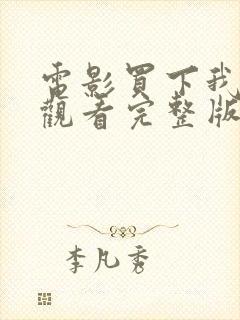 電影買下我
觀看完整版
李凡秀